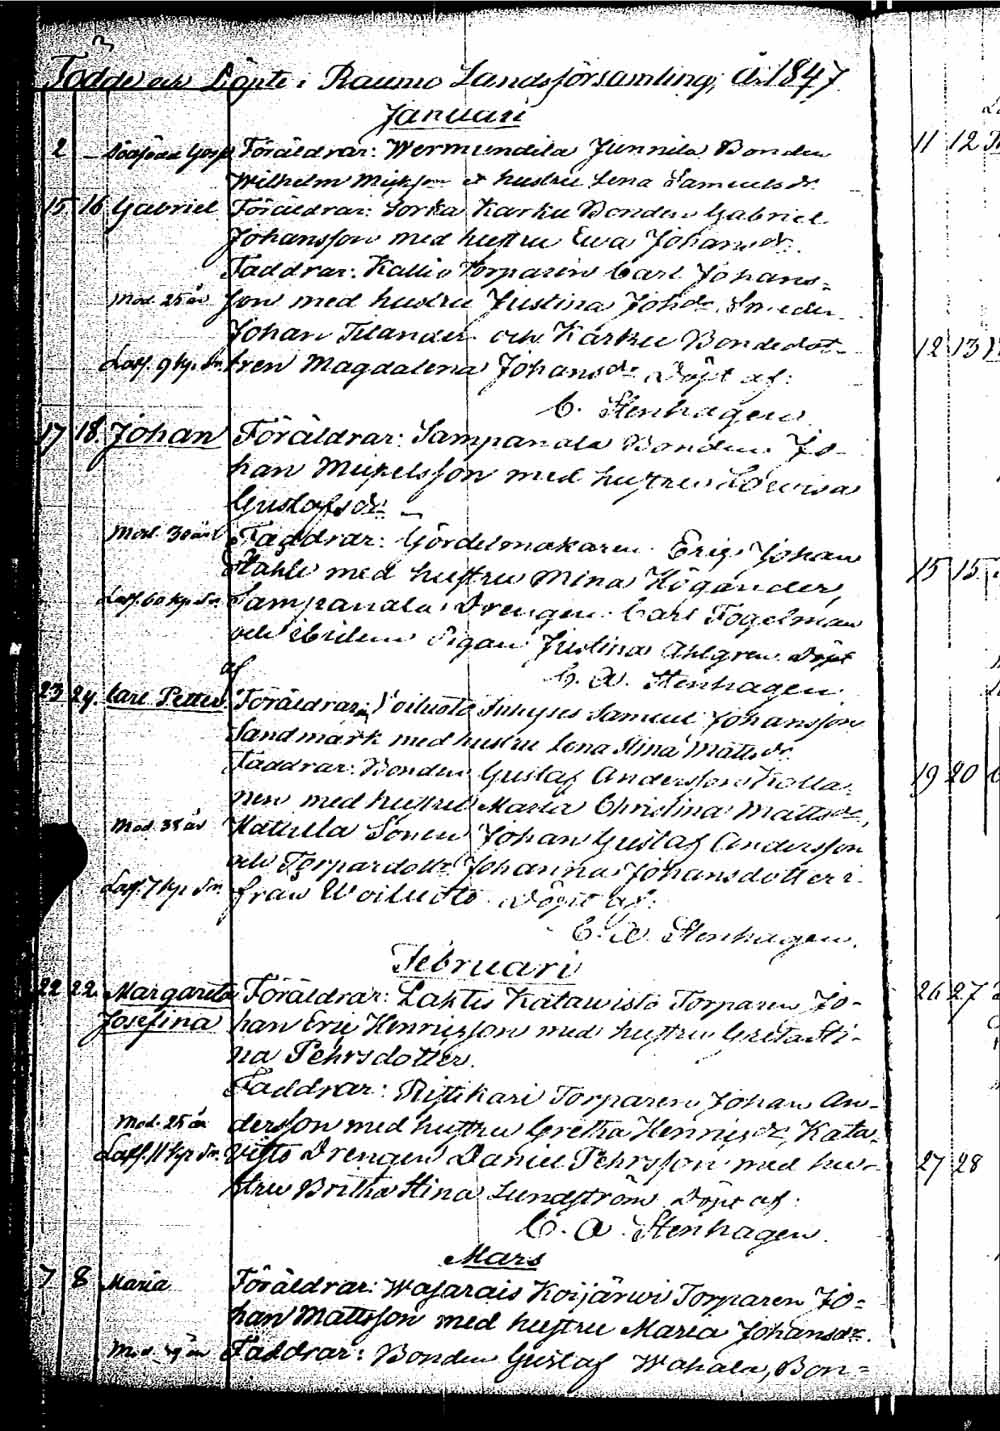 3
Födde och Döpte i Raumo Landsförsamling, År 1847
Januari
2 — Dödfödd Gosse Föräldrar: Wermundila Junnila Bonden
Wilhelm Michson et hustru Lena Samuelsdr.
15 16 Gabriel Föräldrar: Sorka Karku Bonden Gabriel
Johansson med hustru Ewa Johansdr.
Faddrar: Kallio Torparen Carl Johans=
Mod. 25 år son med hustru Justina Johsdr Smeden
Johan Tilander och Karku Bondedot-
tren Magdalena Johansdr Döpt af:
C. Stenhagen
17 18. Johan Föräldrar: Sampanala Bonden Jo-
han Mickelsson med hustru Lowisa
Gustafsdr.
Mod. 30 år Faddrar: Gördelmakaren Eric Johan
Ståhle med hustru Mina Högander,
Sampanala Drengen Carl Fogelman
och Pigan Justina Ahlgren. Döpt
af C. A. Stenhagen
23 24. Carl Petter. Föräldrar: Woiluoto Inhyses Samuel Johansson
Sandmark med hustru Lena Stina Mattsdr.
Faddrar: Bonden Gustaf Andersson Kolla-
nen med hustru Maria Christina Mattsdr,
Mod. 38 år Kattila Sonen Johan Gustaf Andersson
och Torpardottr Johanna Johansdotter
från Woiluoto Döpt af:
C. A. Stenhagen.
Februari
22 22. Margareta Föräldrar: Lahtis Katawisto Torparen Jo-
Josefina han Eric Henricsson med hustru Greta Sti-
na Pehrsdotter.
Faddrar: Torparen Johan An-
Mod. 25 år dersson med hustru Gretha Henricsdr, Kata-
witto Drengen Daniel Pehrsson med hu-
stru Britha Stina Lundström. Döpt af:
C. A. Stenhagen.
Mars
7 8 Maria Föräldrar: Wasarais Koijärwi Torparen Jo=
han Mattsson med hustru Maria Johansdr.
Faddrar: Bonden Gustaf Wahala, Bon=
11 12
12 13
15 15
19 20
26 27
27 28